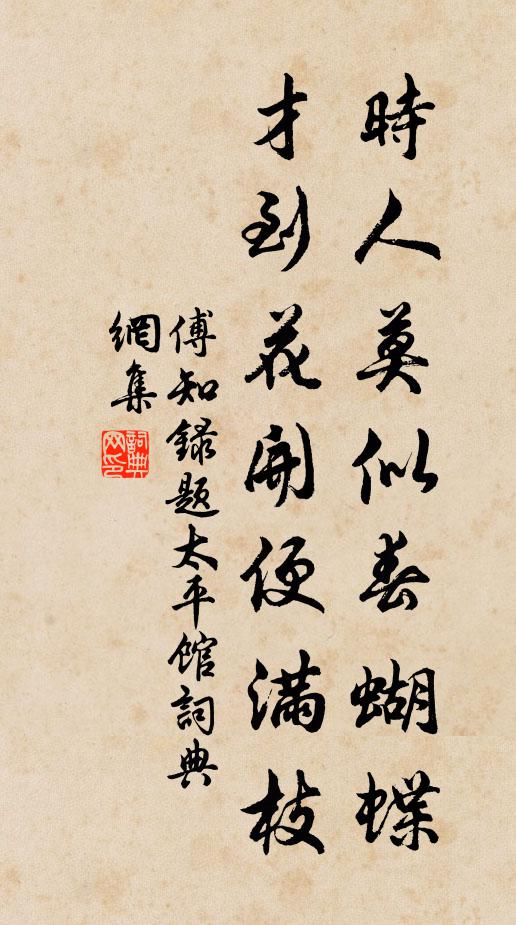 時人莫似春蝴蝶
才到花開便滿枝
傅知錄題太平館詞典
網集
詞典網印